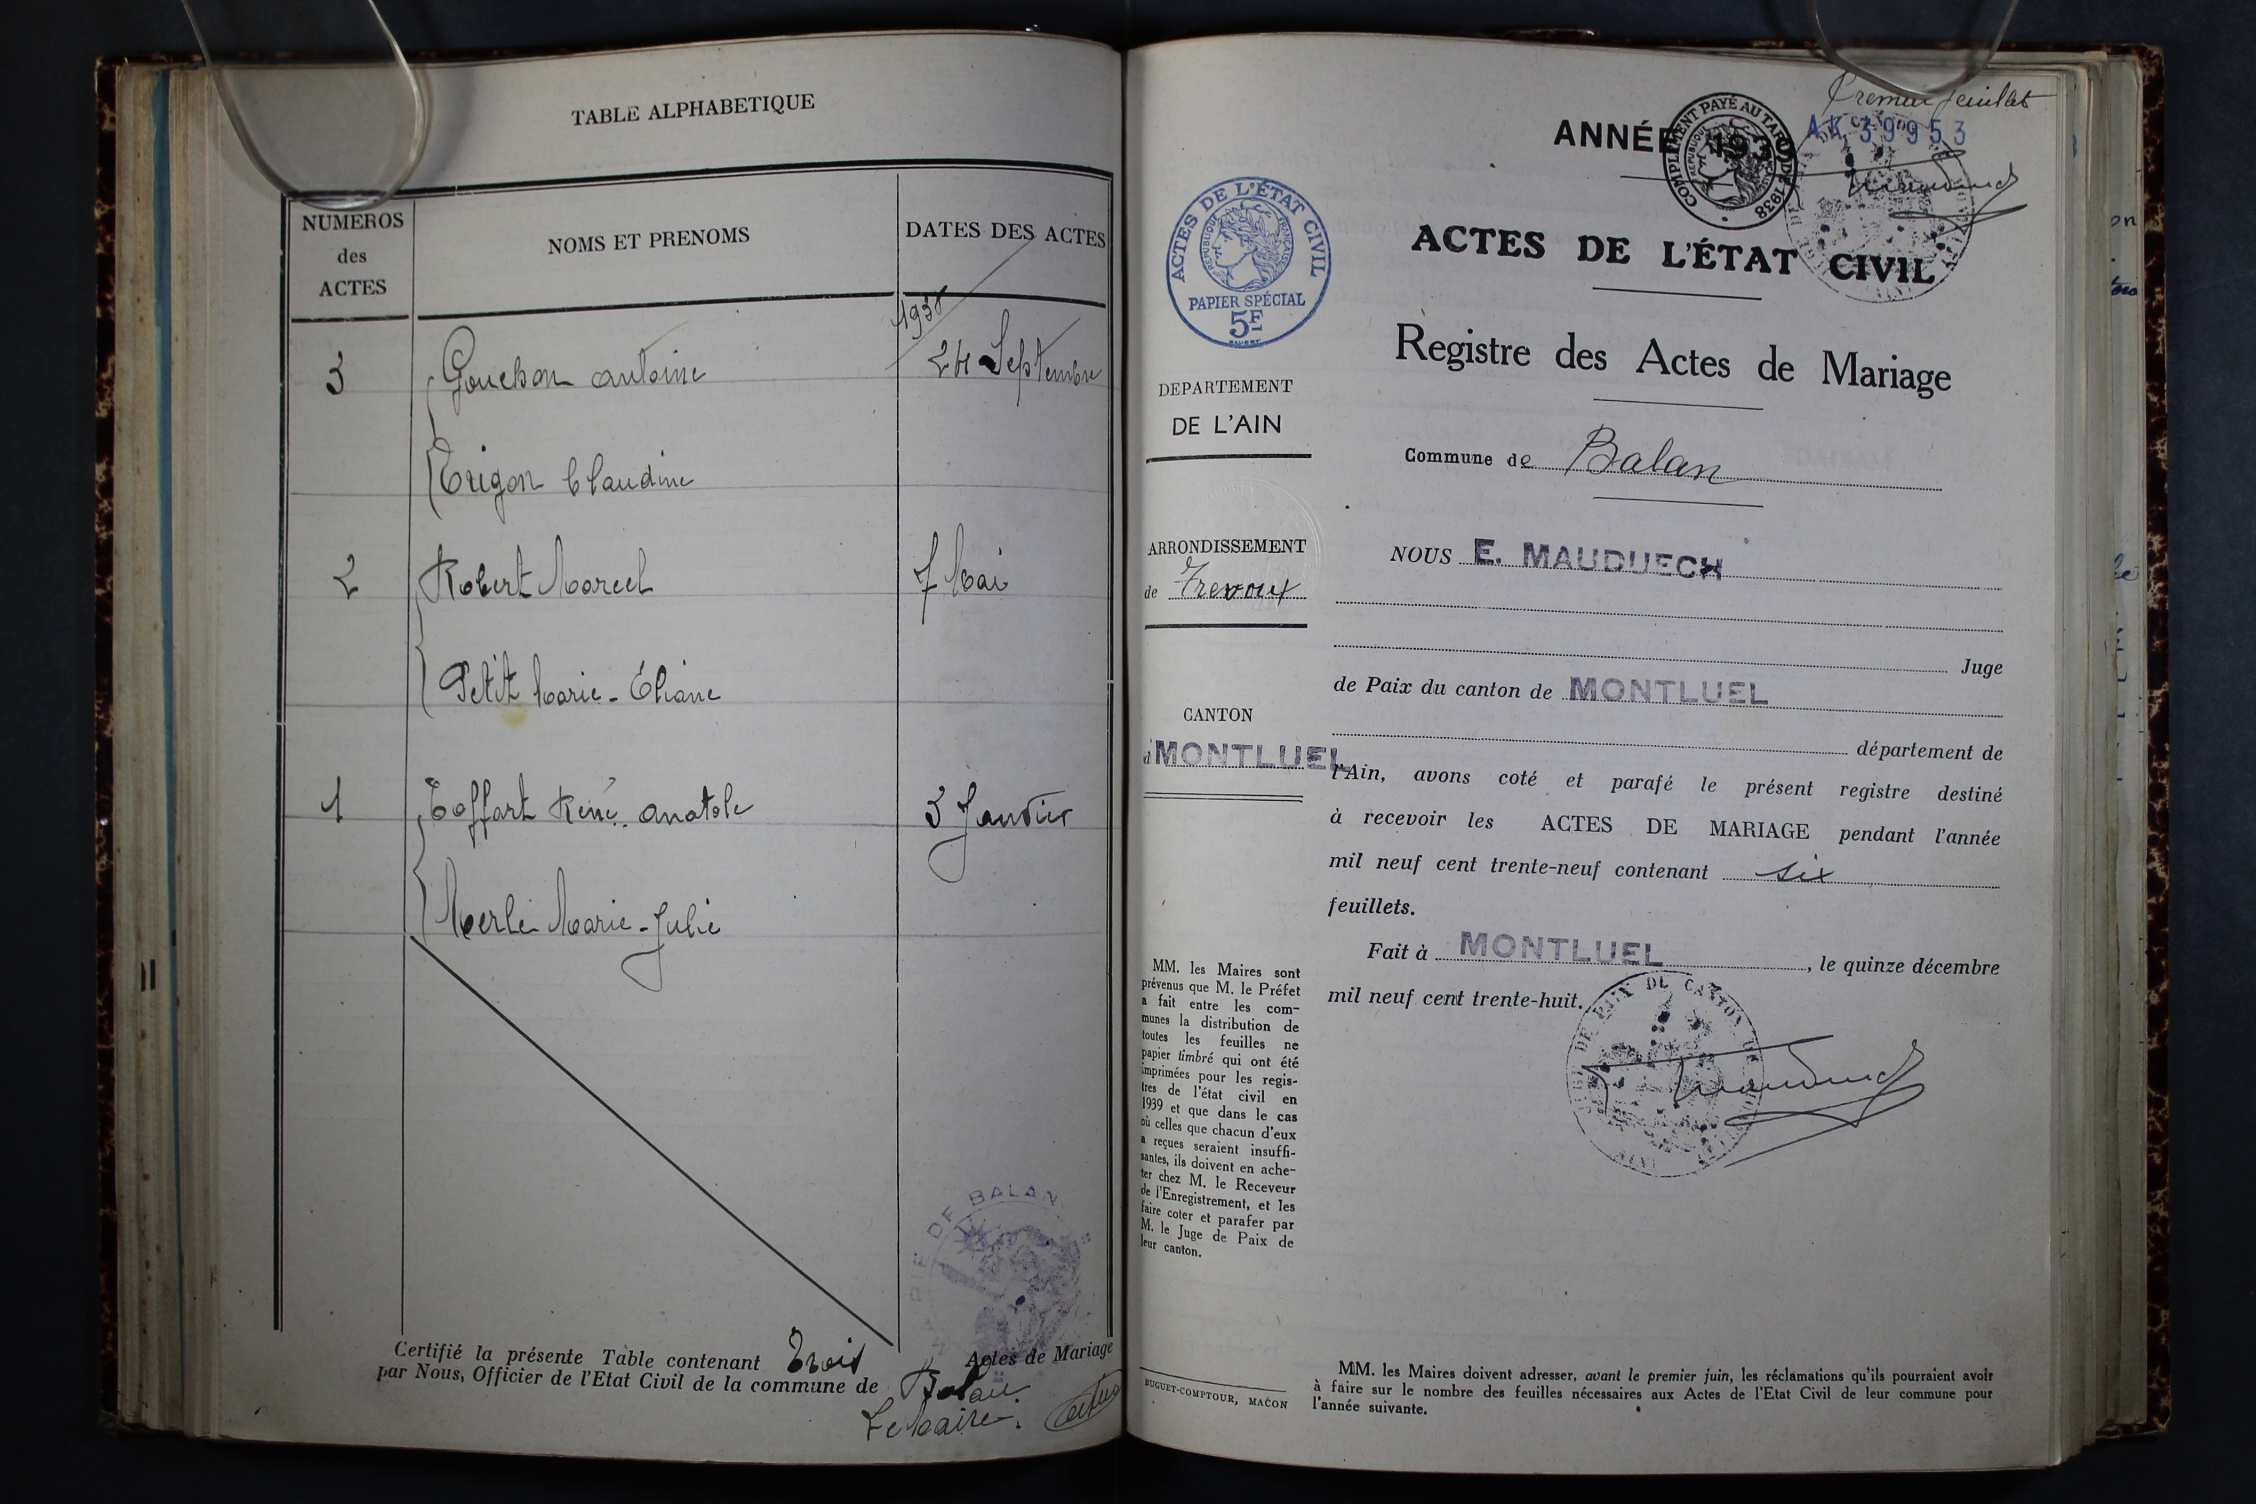 TABLE ALPHABETIQUE
NUMEROS
des
ACTES
NOMS ET PRENOMS
DATES DES ACTES
1938
3
Gouchon Antoine
24 Septembre
Trigon Claudine
2
Robert Marcel
7 Mai
Petit Marie-Éliane
1
Toffart René Anatole
3 Janvier
Merle Marie-Julie
MAIRIE DE BALAN
Certifié la présente Table contenant Trois Actes de Mariage
par Nous, Officier de l'Etat Civil de la commune de Balan
Le Maire.
Premier feuillet
ANNÉE 193
COMPLEMENT PAYÉ AU TARIF DE 1938
AK 39953
ACTES DE L'ÉTAT CIVIL
REPUBLIQUE FRANÇAISE
PAPIER SPÉCIAL
5F
ACTES DE L'ÉTAT CIVIL
Registre des Actes de Mariage
DEPARTEMENT
DE L'AIN
Commune de Balan
ARRONDISSEMENT
de Trevoux
CANTON
d MONTLUEL
NOUS E. MAUDUECH
Juge
de Paix du canton de MONTLUEL
département de
l'Ain, avons coté et parafé le présent registre destiné
à recevoir les ACTES DE MARIAGE pendant l'année
mil neuf cent trente-neuf contenant six
feuillets.
Fait à MONTLUEL, le quinze décembre
mil neuf cent trente-huit.
DE PAIX DU CANTON DE
MM. les Maires sont
prévenus que M. le Préfet
a fait entre les com-
munes la distribution de
toutes les feuilles ne
papier timbré qui ont été
imprimées pour les regis-
tres de l'état civil en
1939 et que dans le cas
où celles que chacun d'eux
a reçues seraient insuffi-
santes, ils doivent en ache-
ter chez M. le Receveur
de l'Enregistrement, et les
faire coter et parafer par
M. le Juge de Paix de
leur canton.
BUGUET-COMPTOUR, MACON
MM. les Maires doivent adresser, avant le premier juin, les réclamations qu'ils pourraient avoir
à faire sur le nombre des feuilles nécessaires aux Actes de l'Etat Civil de leur commune pour
l'année suivante.